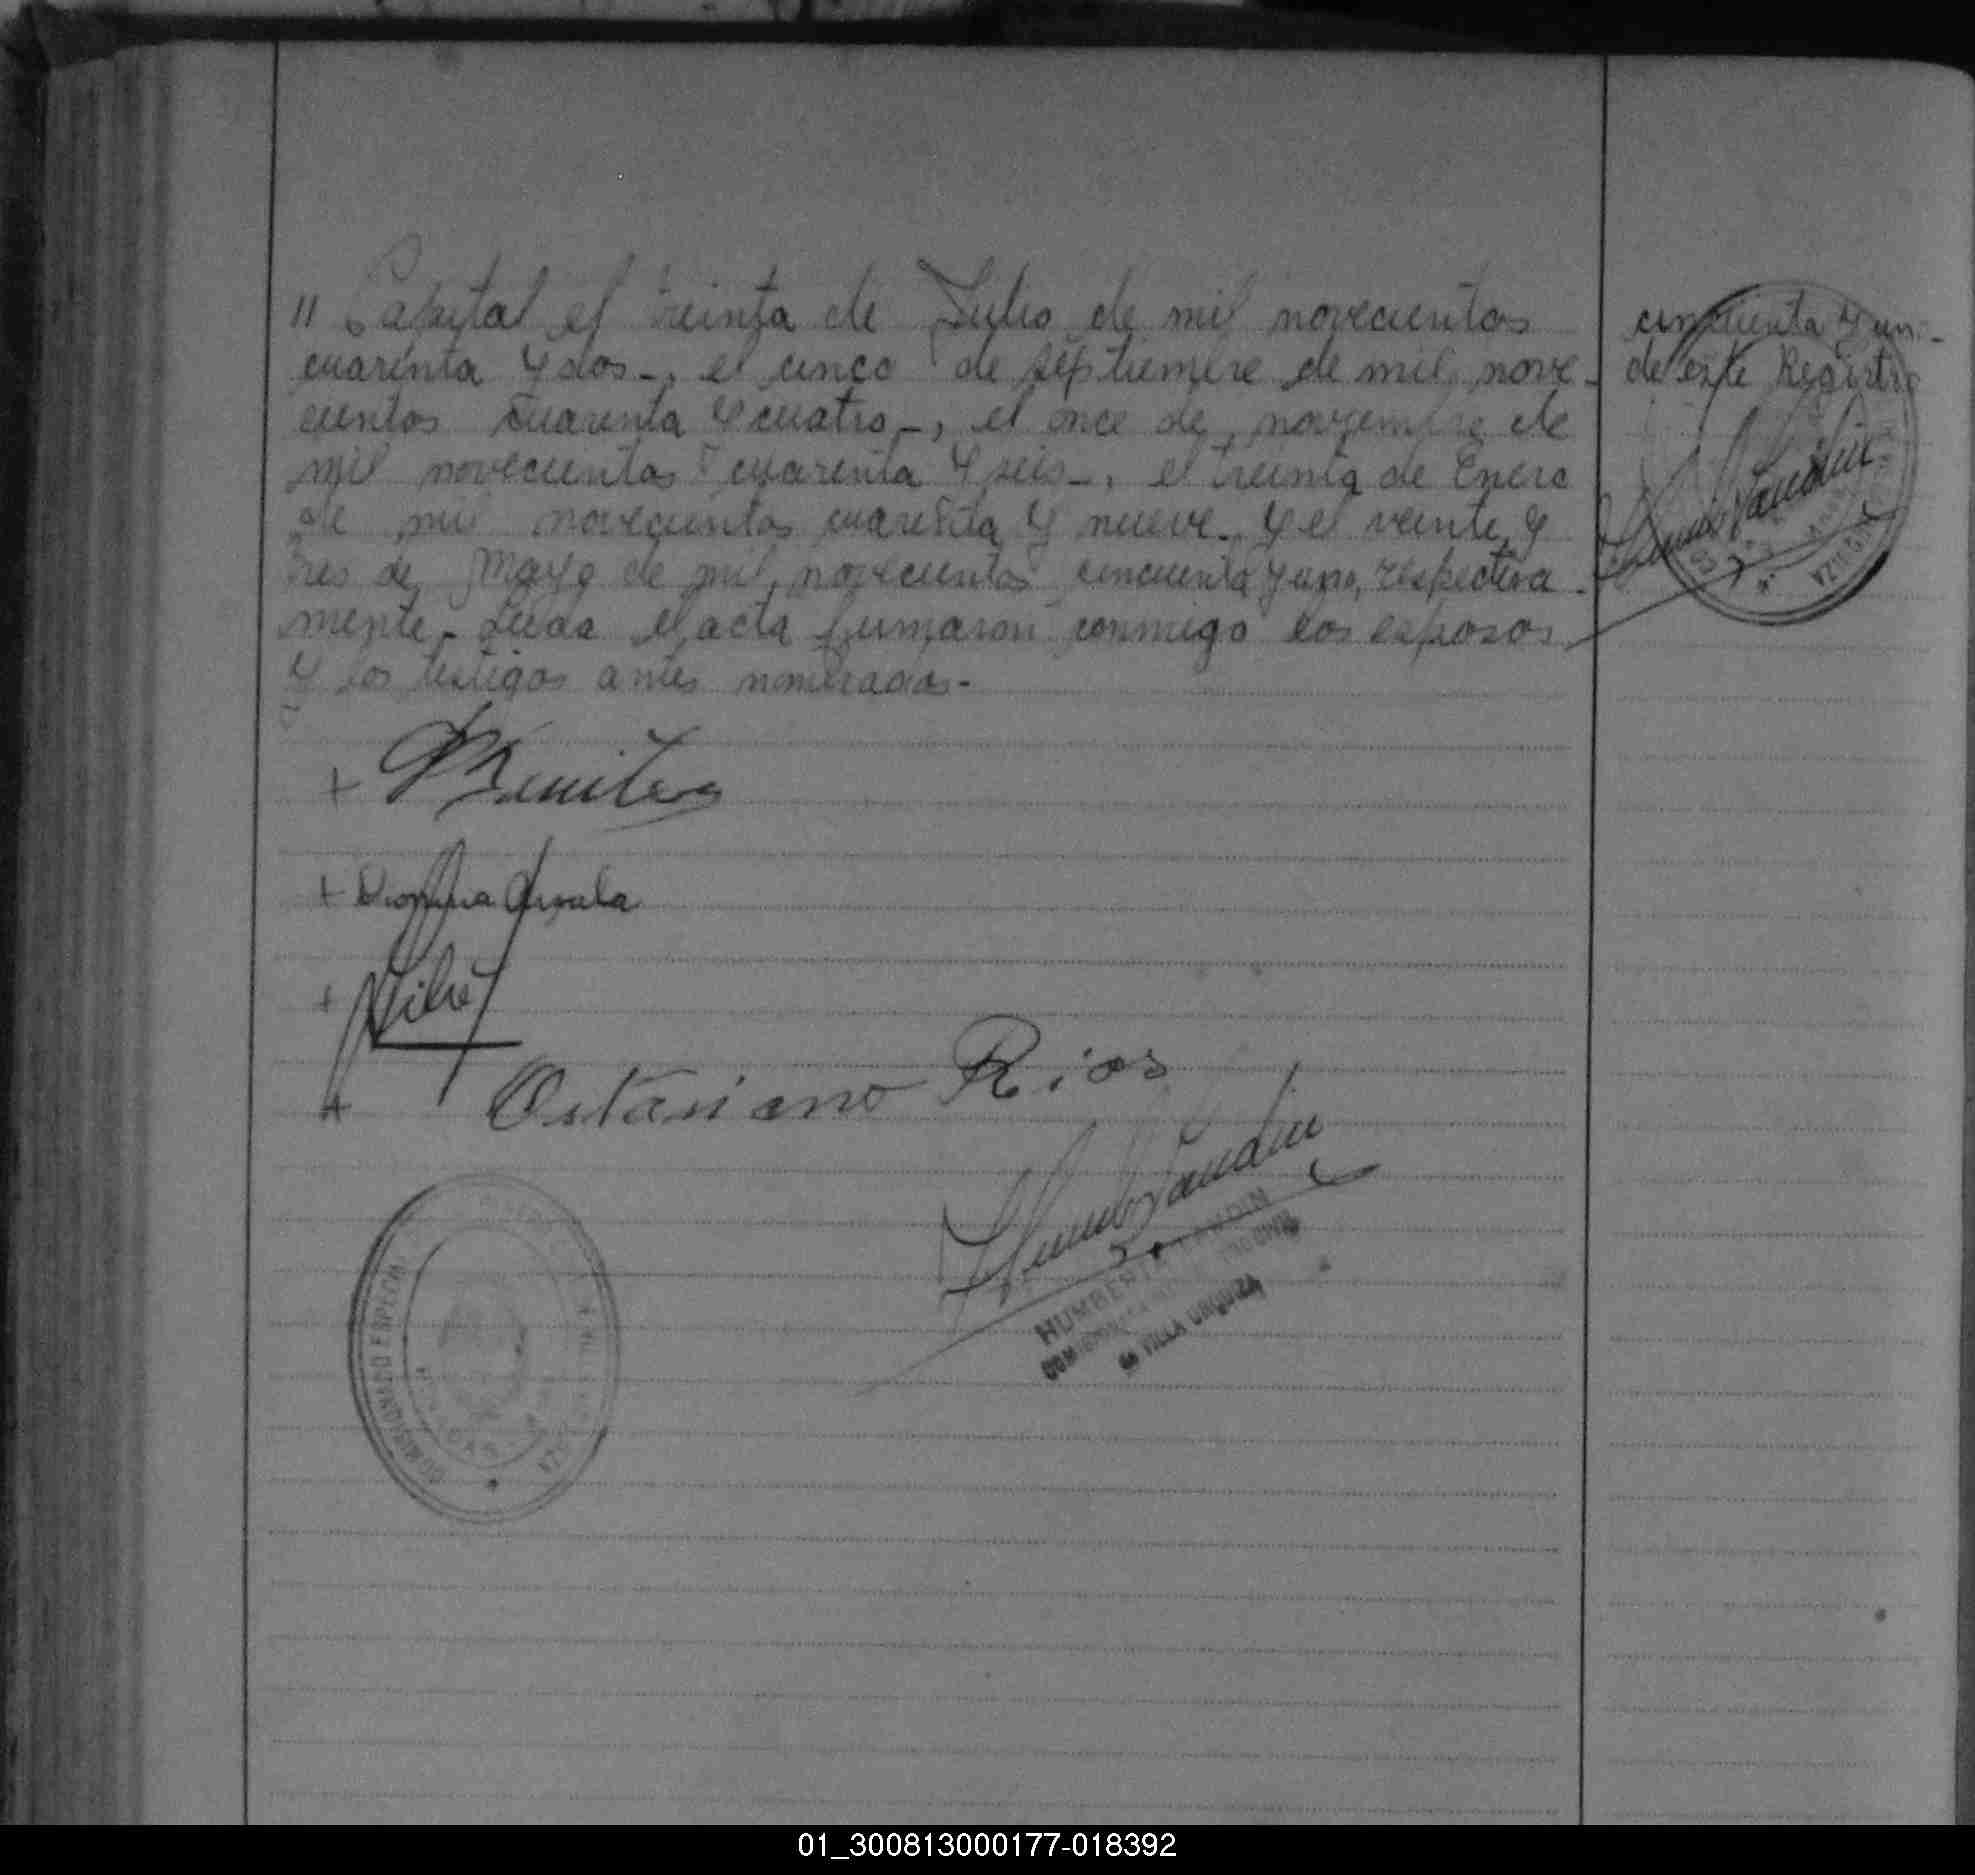 " Capital el treinta de Julio de mil novecientos
cuarenta y dos-, el cinco de septiembre de mil nove-
cientos cuarenta y cuatro-, el once de noviembre de
mil novecientos cuarenta y seis-, el treinta de Enero
de mil novecientos cuarenta y nueve- y el veinte y
tres de Mayo de mil novecientos cincuenta y uno, respectiva-
mente- Leida el acta firmaron conmigo los esposos
y los testigos antes nombrados-
cincuenta y un-
de este Registro
+ Benitez
+ Ayala
+
+ Octaviano Rios
HUMBERTO LANDIN
VILLA URQUIZA
COMISIONADO ESPECIAL
01_300813000177-018392